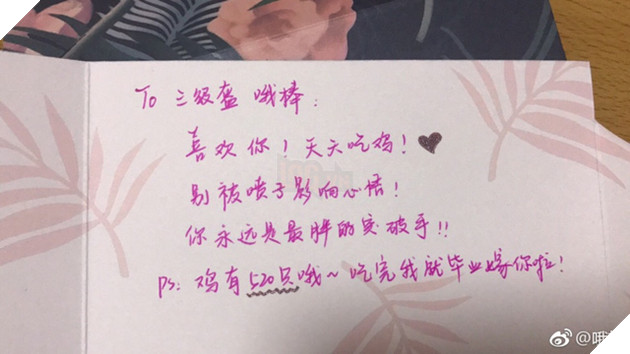 To 三级盔哦棒:
喜欢你!天天吃鸡!
别被喷子影响心情!
你永远是最胖的突破手!!
ps: 鸡有520只哦~吃完我就毕业嫁你啦!